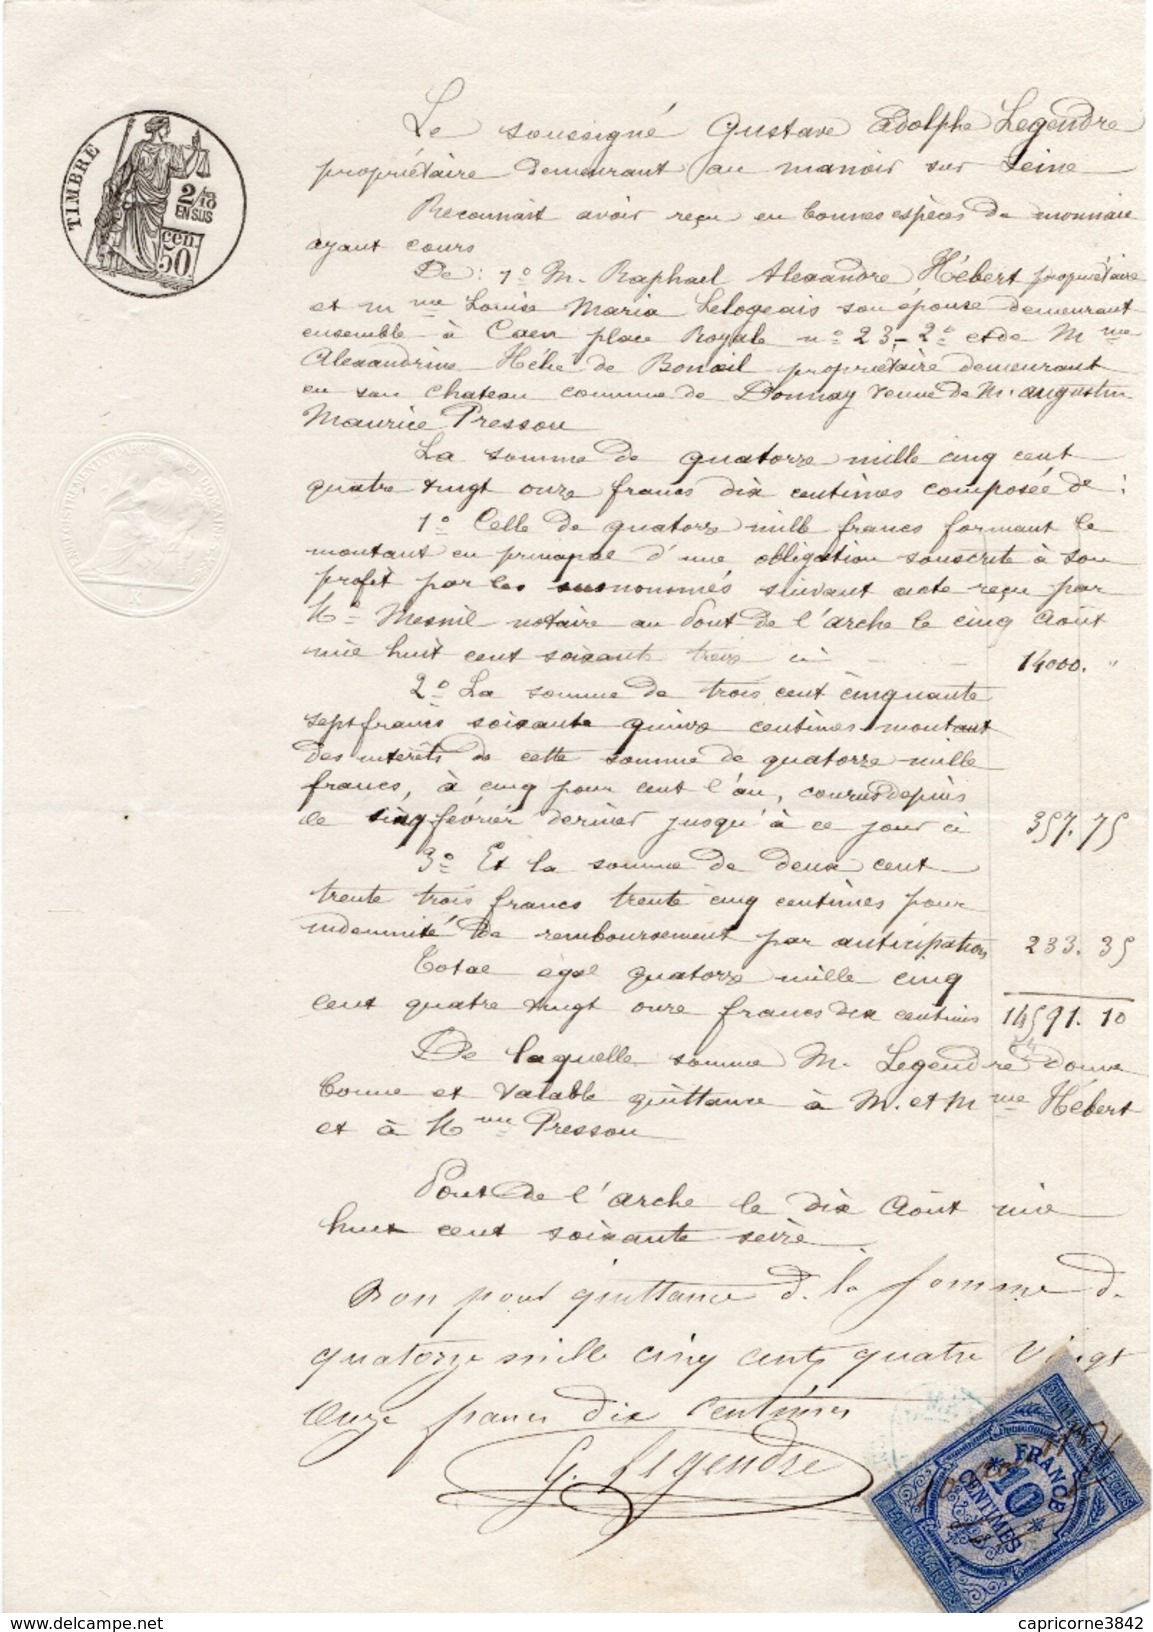 TIMBRE
2/10
EN SUS
cen.
50
Le soussigné Gustave Adolphe Legendre
propriétaire demeurant au manoir sur Seine
Reconnait avoir reçu en bonnes espèces de monnaie
ayant cours
De : 1º M. Raphael Alexandre Hébert propriétaire
et Mme Louise Maria Lelogeais son épouse demeurant
ensemble à Caen place Royale nº 23 - 2º et de Mme
Alexandrine de Bonœil propriétaire demeurant
en son chateau commune de Donnay veuve de M. augustin
Maurice Presson
La somme de quatorze mille cinq cent
quatre vingt onze francs dix centimes composée de :
1º Celle de quatorze mille francs formant le
montant en principal d'une obligation souscrite à son
profit par les susnommés suivant acte reçu par
Me Mesnil notaire au Pont de l'arche le cinq Août
mil huit cent soixante treize ci 14000. "
2º La somme de trois cent cinquante
sept francs soixante quinze centimes montant
des interêts de cette somme de quatorze mille
francs, à cinq pour cent l'an, courus depuis
le cinq février dernier jusqu'à ce jour ci 357. 75
3º Et la somme de deux cent
trente trois francs trente cinq centimes pour
indemnité de remboursement par anticipation 233. 35
Total égal quatorze mille cinq
cent quatre vingt onze francs dix centimes 14591. 10
De laquelle somme M. Legendre donne
bonne et valable quittance à M. et Mme Hébert
et à Mme Presson
Pont de l'arche le dix Août mil
huit cent soixante seize
Bon pour quittance de la somme de
quatorze mille cinq cents quatre vingt
onze francs dix centimes
G. Legendre
FRANCE
10
CENTIMES
capricorne3842